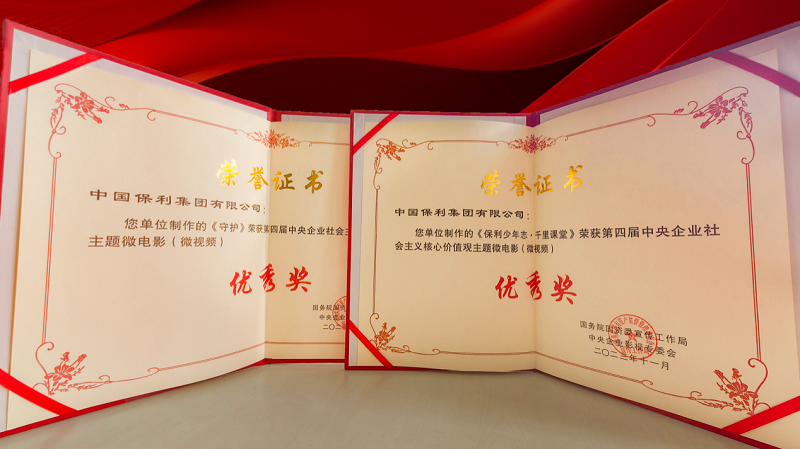 荣誉证书
中国保利集团有限公司：
您单位制作的《守护》荣获第四届中央企业社会主
主题微电影（微视频）
优秀奖
国务院国资
中央企业
荣誉证书
中国保利集团有限公司：
您单位制作的《保利少年志·千里课堂》荣获第四届中央企业社
会主义核心价值观主题微电影（微视频）
优秀奖
国务院国资委宣传工作局
中央企业影视专委会
二〇二二年十一月